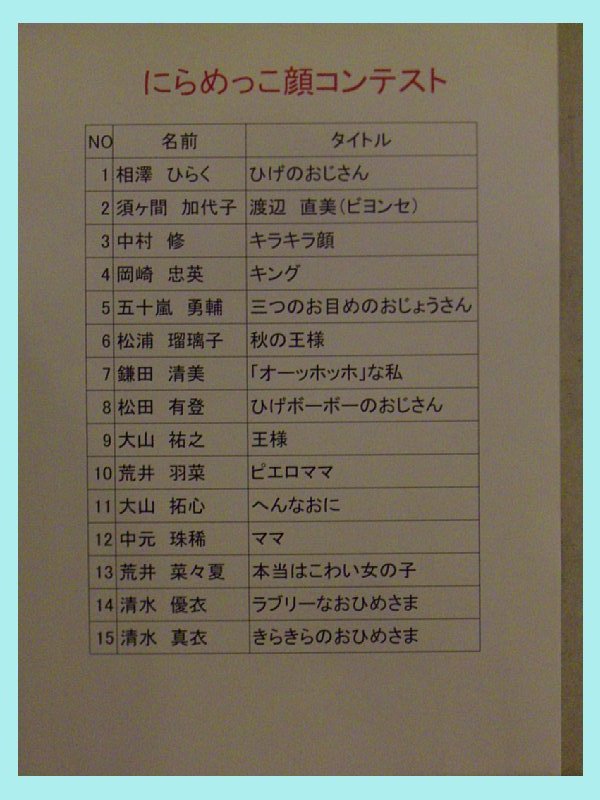 にらめっこ顔コンテスト
NO 名前 タイトル
1 相澤 ひらく ひげのおじさん
2 須ヶ間 加代子 渡辺 直美(ビヨンセ)
3 中村 修 キラキラ顔
4 岡崎 忠英 キング
5 五十嵐 勇輔 三つのお目めのおじょうさん
6 松浦 瑠璃子 秋の王様
7 鎌田 清美 「オーッホッホ」な私
8 松田 有登 ひげボーボーのおじさん
9 大山 祐之 王様
10 荒井 羽菜 ピエロママ
11 大山 拓心 へんなおに
12 中元 珠稀 ママ
13 荒井 菜々夏 本当はこわい女の子
14 清水 優衣 ラブリーなおひめさま
15 清水 真衣 きらきらのおひめさま